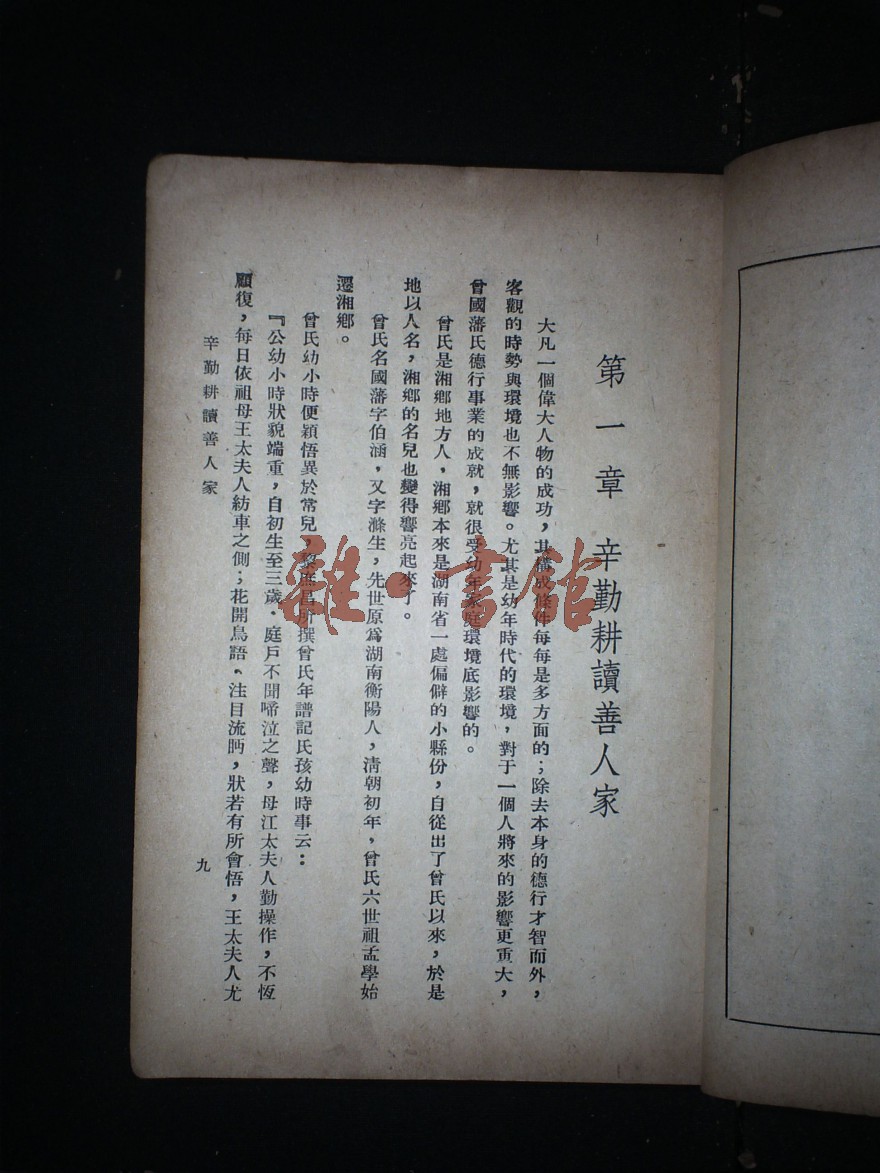 第一章 辛勤耕讀善人家
大凡一個偉大人物的成功，其構成條件每每是多方面的；除去本身的德行才智而外，
客觀的時勢與環境也不無影響。尤其是幼年時代的環境，對于一個人將來的影響更重大，
曾國藩氏德行事業的成就，就很受幼年家庭環境底影響的。
曾氏是湘鄉地方人，湘鄉本來是湖南省一處偏僻的小縣份，自從出了曾氏以來，於是
地以人名，湘鄉的名兒也變得響亮起來了。
曾氏名國藩字伯涵，又字滌生，先世原爲湖南衡陽人，清朝初年，曾氏六世祖孟學始
遷湘鄉。
曾氏幼小時便穎悟異於常兒，黎庶昌所撰曾氏年譜記氏孩幼時事云：
『公幼小時狀貌端重，自初生至三歲．庭戶不聞啼泣之聲，母江太夫人勤操作，不恆
顧復，每日依祖母王太夫人紡車之側；花開鳥語、注目流眄，狀若有所會悟，王太夫人尤
辛勤耕讀善人家
九
雜·書館